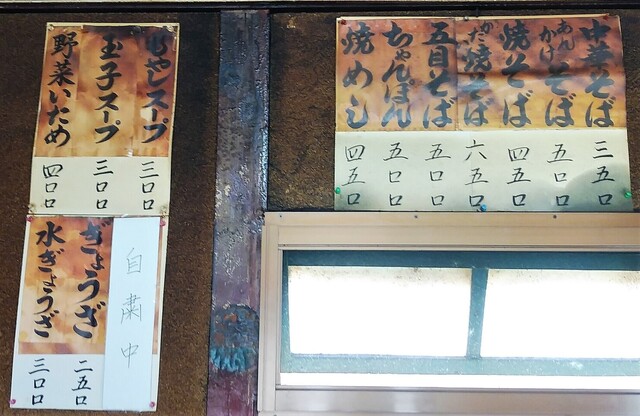 中華そば 三五〇
あんかけそば 五〇〇
焼そば 四五〇
かた焼そば 六五〇
五目そば 五〇〇
ちゃんぽん 五〇〇
焼めし 四五〇
もやしスープ 三〇〇
玉子スープ 三〇〇
野菜いため 四〇〇
自粛中
ぎょうざ 二五〇
水ぎょうざ 三〇〇